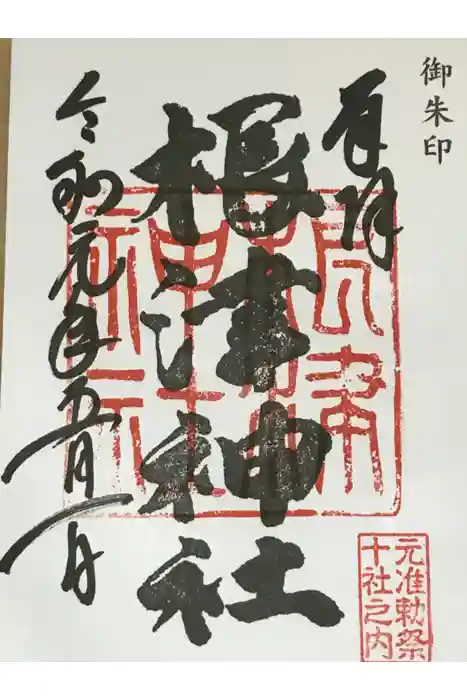 御朱印
奉拝
根津神社
令和元年五月一日
根津神社
元准勅祭
十社之内